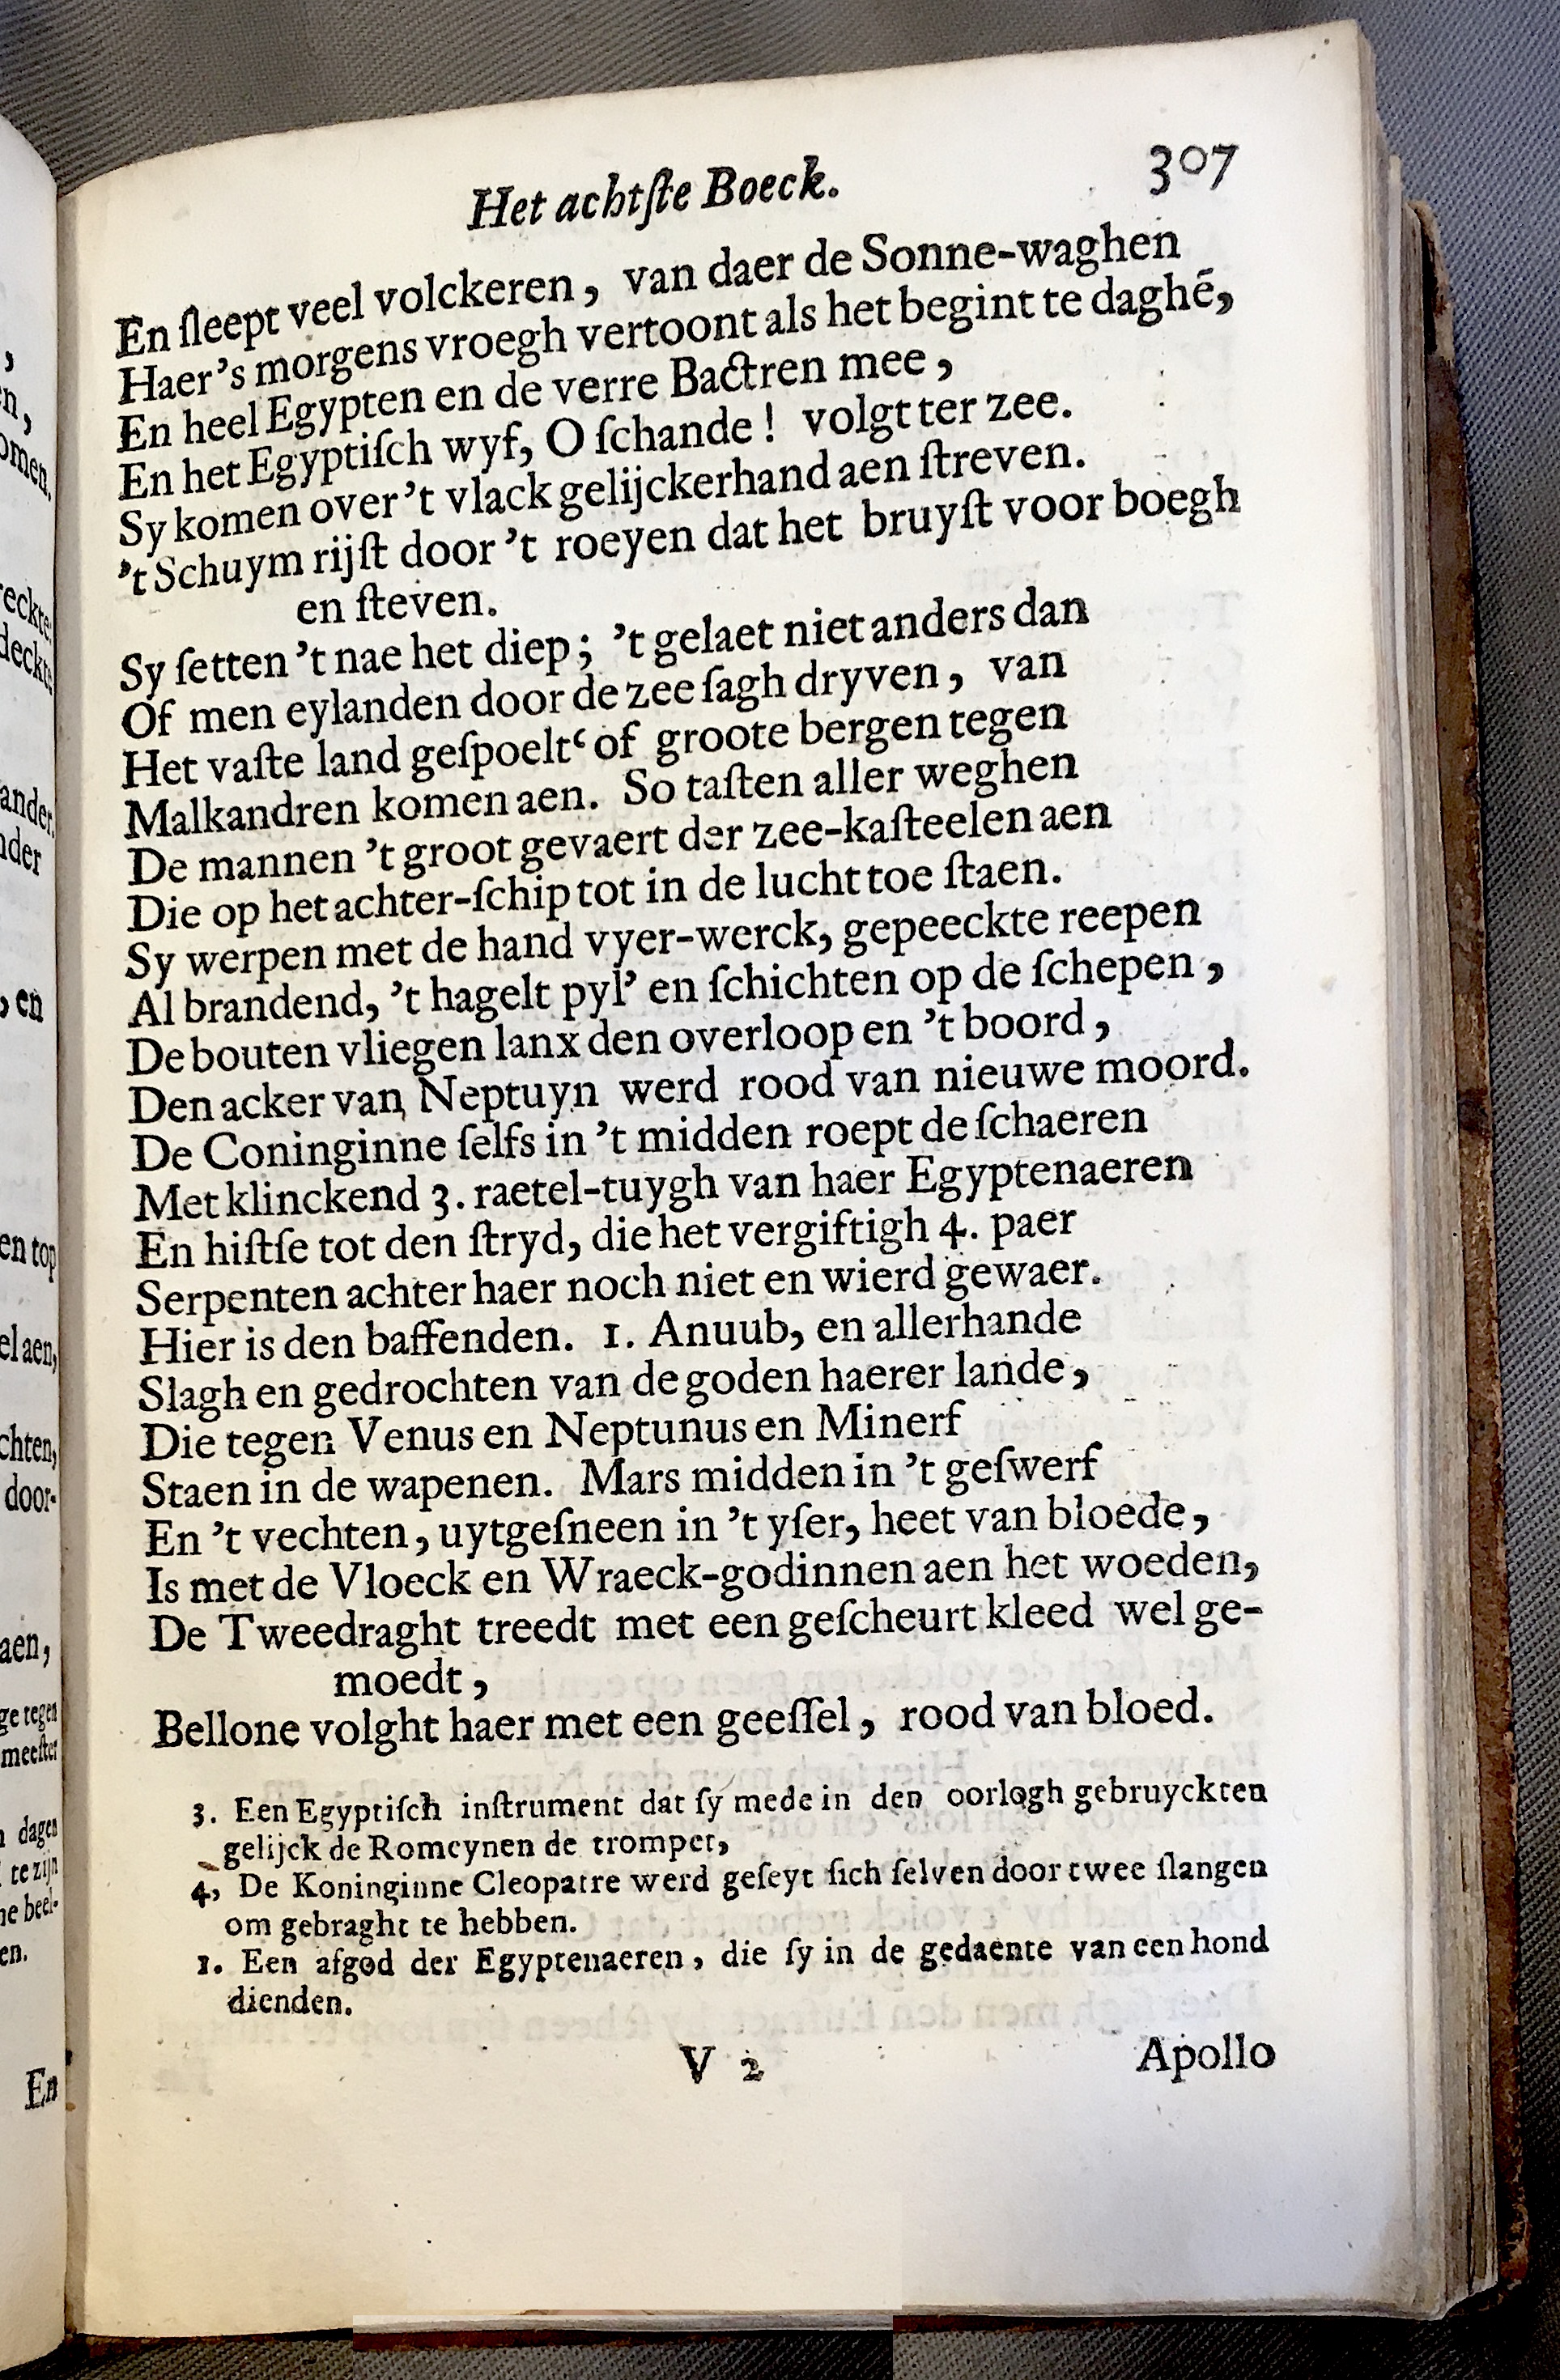 Het achtſte Boeck. 307
En ſleept veel volckeren, van daer de Sonne-waghen
Haer's morgens vroegh vertoont als het begint te daghē,
En heel Egypten en de verre Bactren mee,
En het Egyptiſch wyf, O ſchande! volgt ter zee.
Sy komen over 't vlack gelijckerhand aen ſtreven.
't Schuym rijſt door 't roeyen dat het bruyſt voor boegh
en ſteven.
Sy ſetten 't nae het diep; 't gelaet niet anders dan
Of men eylanden door de zee ſagh dryven, van
Het vaſte land geſpoelt‘ of groote bergen tegen
Malkandren komen aen. So taſten aller weghen
De mannen 't groot gevaert der zee-kaſteelen aen
Die op het achter-ſchip tot in de lucht toe ſtaen.
Sy werpen met de hand vyer-werck, gepeeckte reepen
Al brandend, 't hagelt pyl' en ſchichten op de ſchepen,
De bouten vliegen lanx den overloop en 't boord,
Den acker van Neptuyn werd rood van nieuwe moord.
De Coninginne ſelfs in 't midden roept de ſchaeren
Met klinckend 3. raetel-tuygh van haer Egyptenaeren
En hiſtſe tot den ſtryd, die het vergiftigh 4. paer
Serpenten achter haer noch niet en wierd gewaer.
Hier is den baffenden. 1. Anuub, en allerhande
Slagh en gedrochten van de goden haerer lande,
Die tegen Venus en Neptunus en Minerf
Staen in de wapenen. Mars midden in 't geſwerf
En 't vechten, uytgeſneen in 't yſer, heet van bloede,
Is met de Vloeck en Wraeck-godinnen aen het woeden,
De Tweedraght treedt met een geſcheurt kleed wel ge-
moedt,
Bellone volght haer met een geeſſel, rood van bloed.
3. Een Egyptiſch inſtrument dat ſy mede in den oorlogh gebruyckten
gelijck de Romeynen de trompet,
4, De Koninginne Cleopatre werd geſeyt ſich ſelven door twee ſlangen
om gebraght te hebben.
1. Een afgod der Egyptenaeren, die ſy in de gedaente van een hond
dienden.
V 2 Apollo